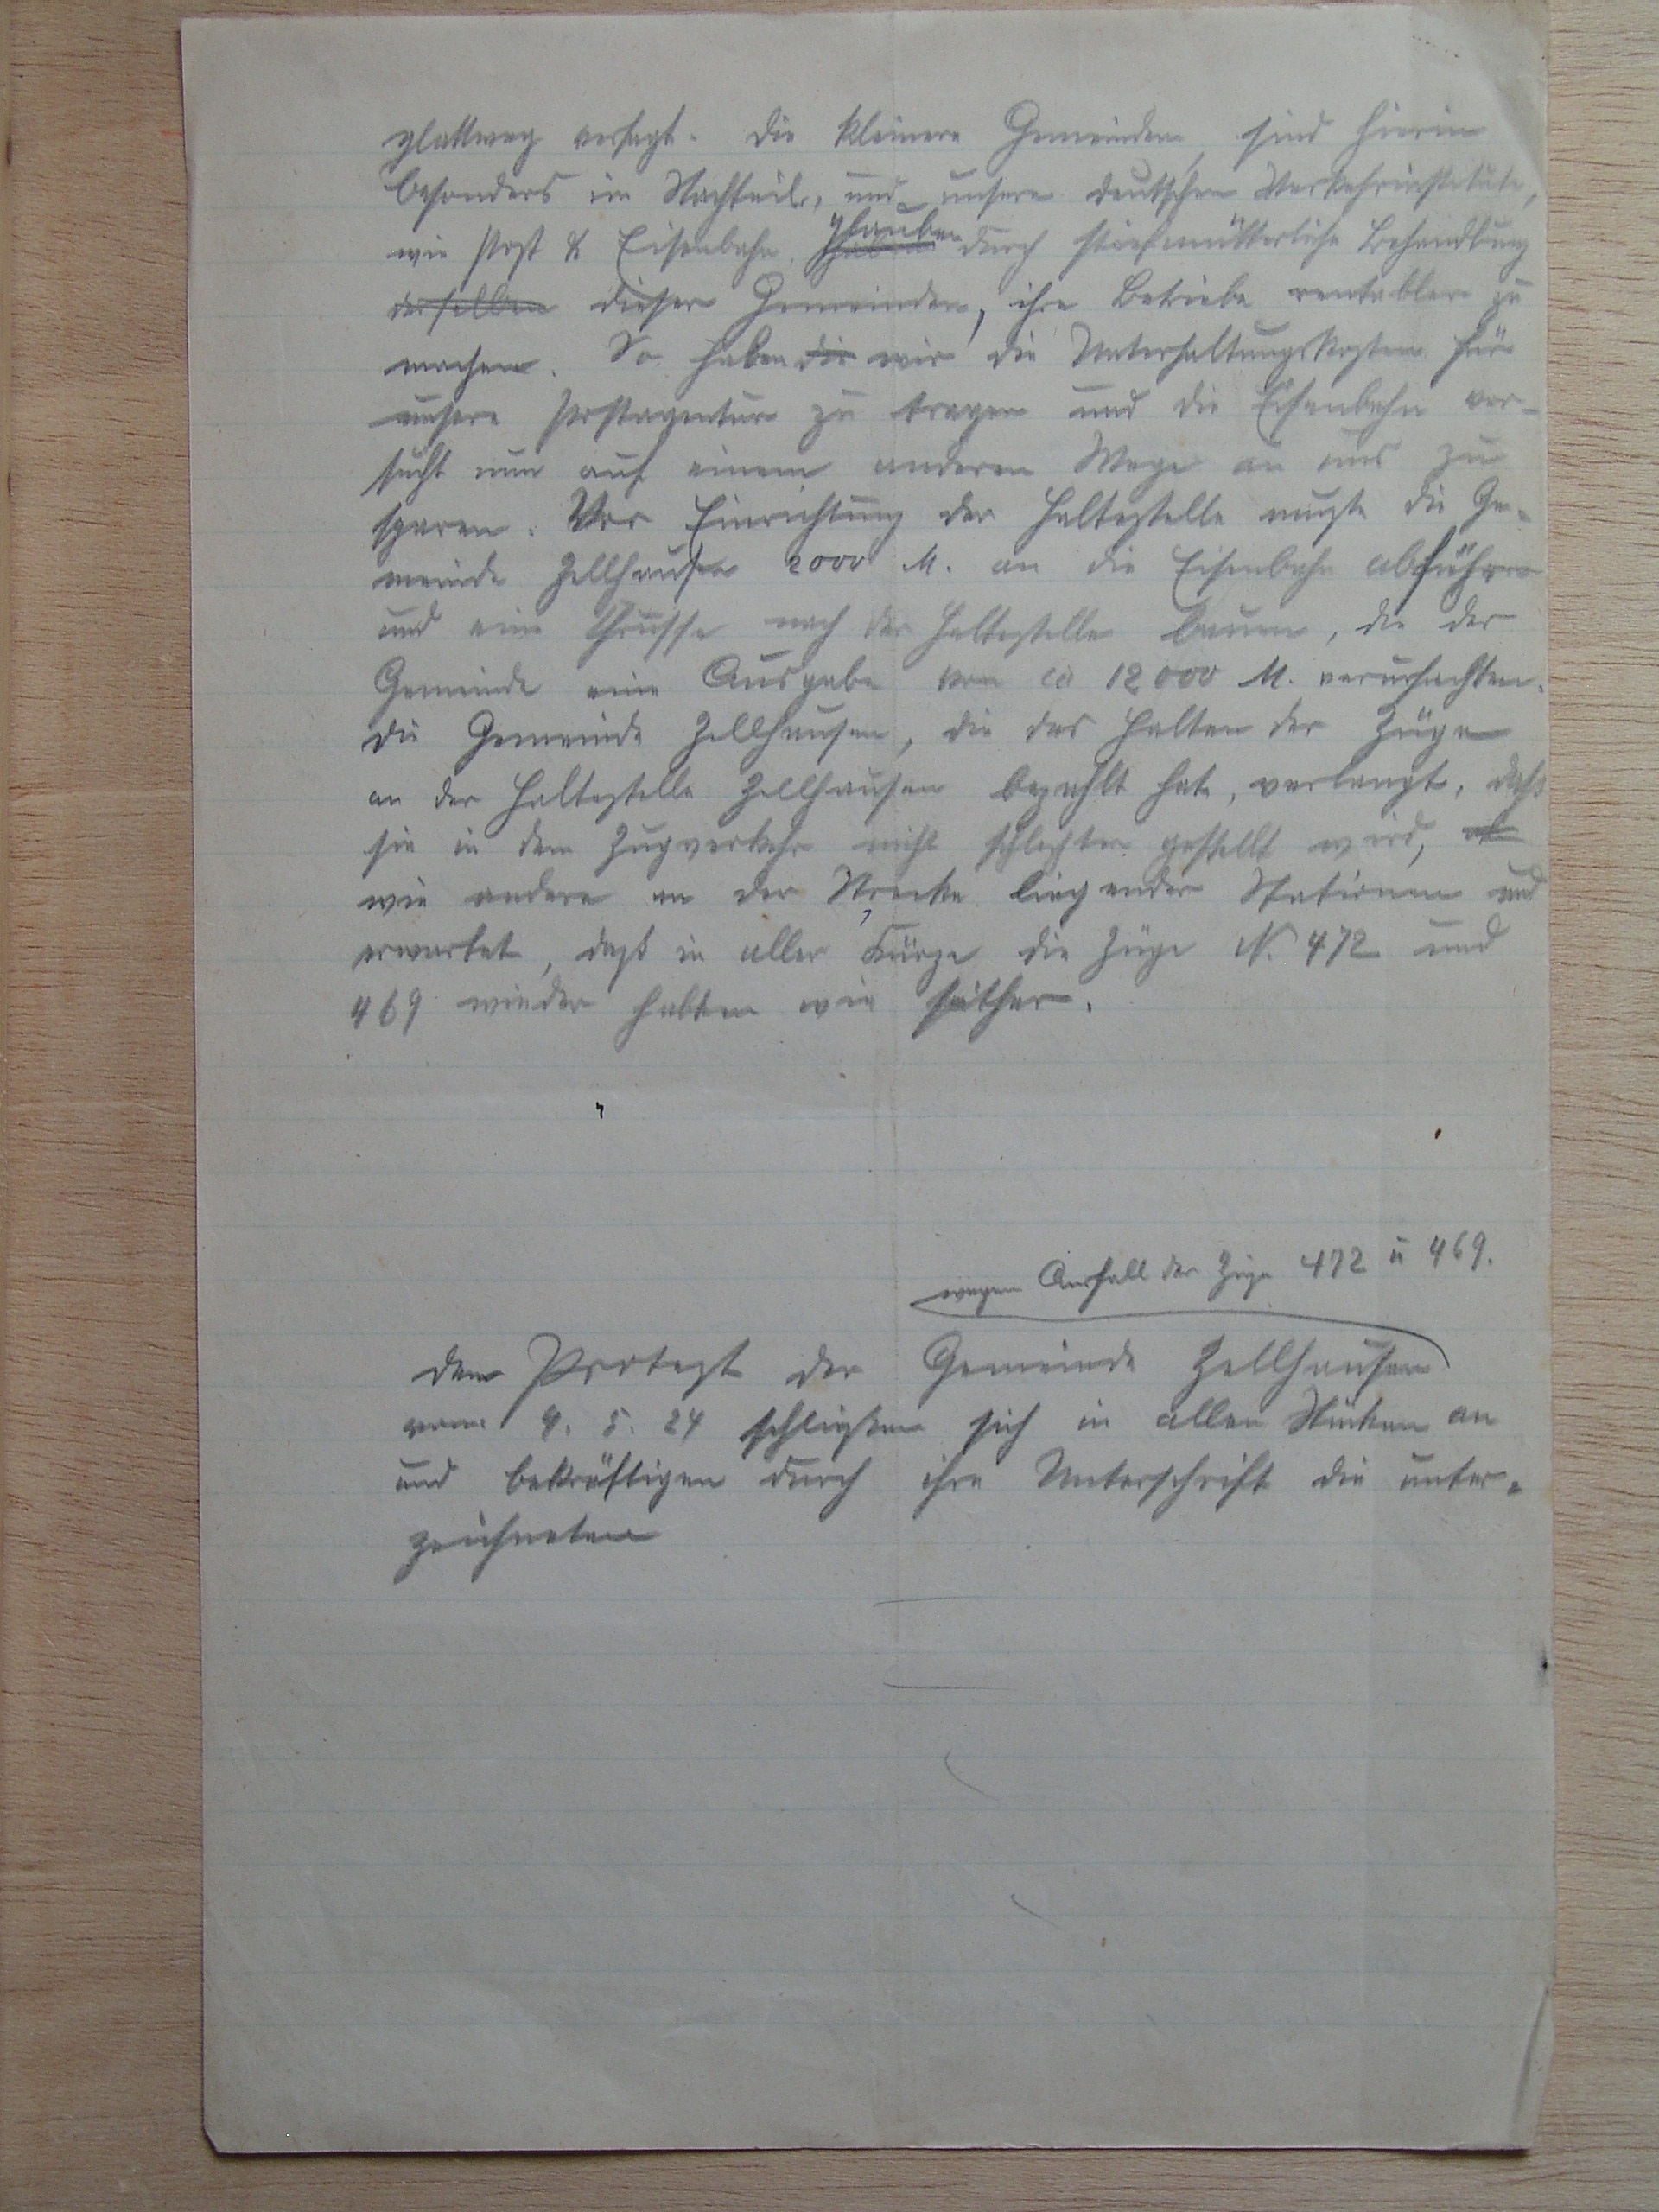 glattweg versagt. Die kleinere Gemeinden sind hierin
besonders im Nachteil, und unsere deutschen Verkehrinstitute,
wie Post & Eisenbahn glauben durch stiefmütterliche Behandlung
derselben dieser Gemeinden, ihre Betriebe rentabler zu
machen. So haben die wir die Unterhaltungskosten für
unsere Postagentur zu tragen und die Eisenbahn ver-
sucht nun auf einem anderen Wege an uns zu
sparen. Vor Einrichtung der Haltestelle mußte die Ge-
meinde Zellhausen 2000 M. an die Eisenbahn abführen
und eine nach der Haltestelle bauen, die der
Gemeinde eine Ausgabe von ca 12000 M. verursachten.
Die Gemeinde Zellhausen, die das Halten der Züge
an der Haltestelle Zellhausen bezahlt hat, verlangt, daß
sie in dem Zugverkehr nicht schlechter gestellt wird,
wie andere an der Strecke liegender Stationen und
erwartet, daß in aller Kürze die Züge N. 472 und
469 wieder halten wie seither.
wegen Ausfall der Züge 472 u 469.
Dem Protest der Gemeinde Zellhausen
vom 9. 5. 24 schließen sich in allen Stücken an
und bekräftigen durch ihre Unterschrift die unter-
zeichneten